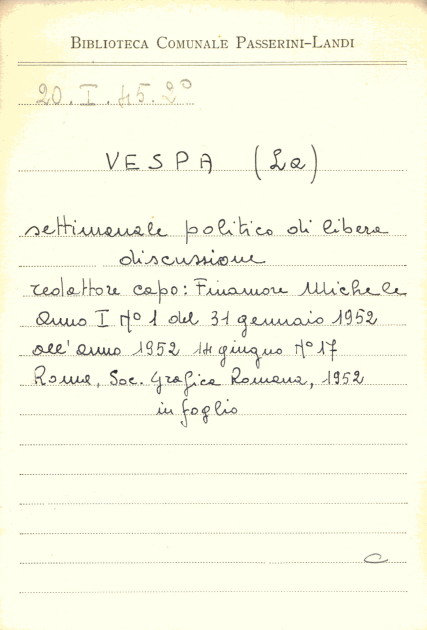 BIBLIOTECA COMUNALE PASSERINI-LANDI
20. I. 45. 2°
VESPA (La)
settimanale politico di libera
discussione
redattore capo: Finamore Michele
Anno I N° 1 del 31 gennaio 1952
all'anno 1952 14 giugno N° 17
Roma, Soc. Grafica Romana, 1952
in foglio
C